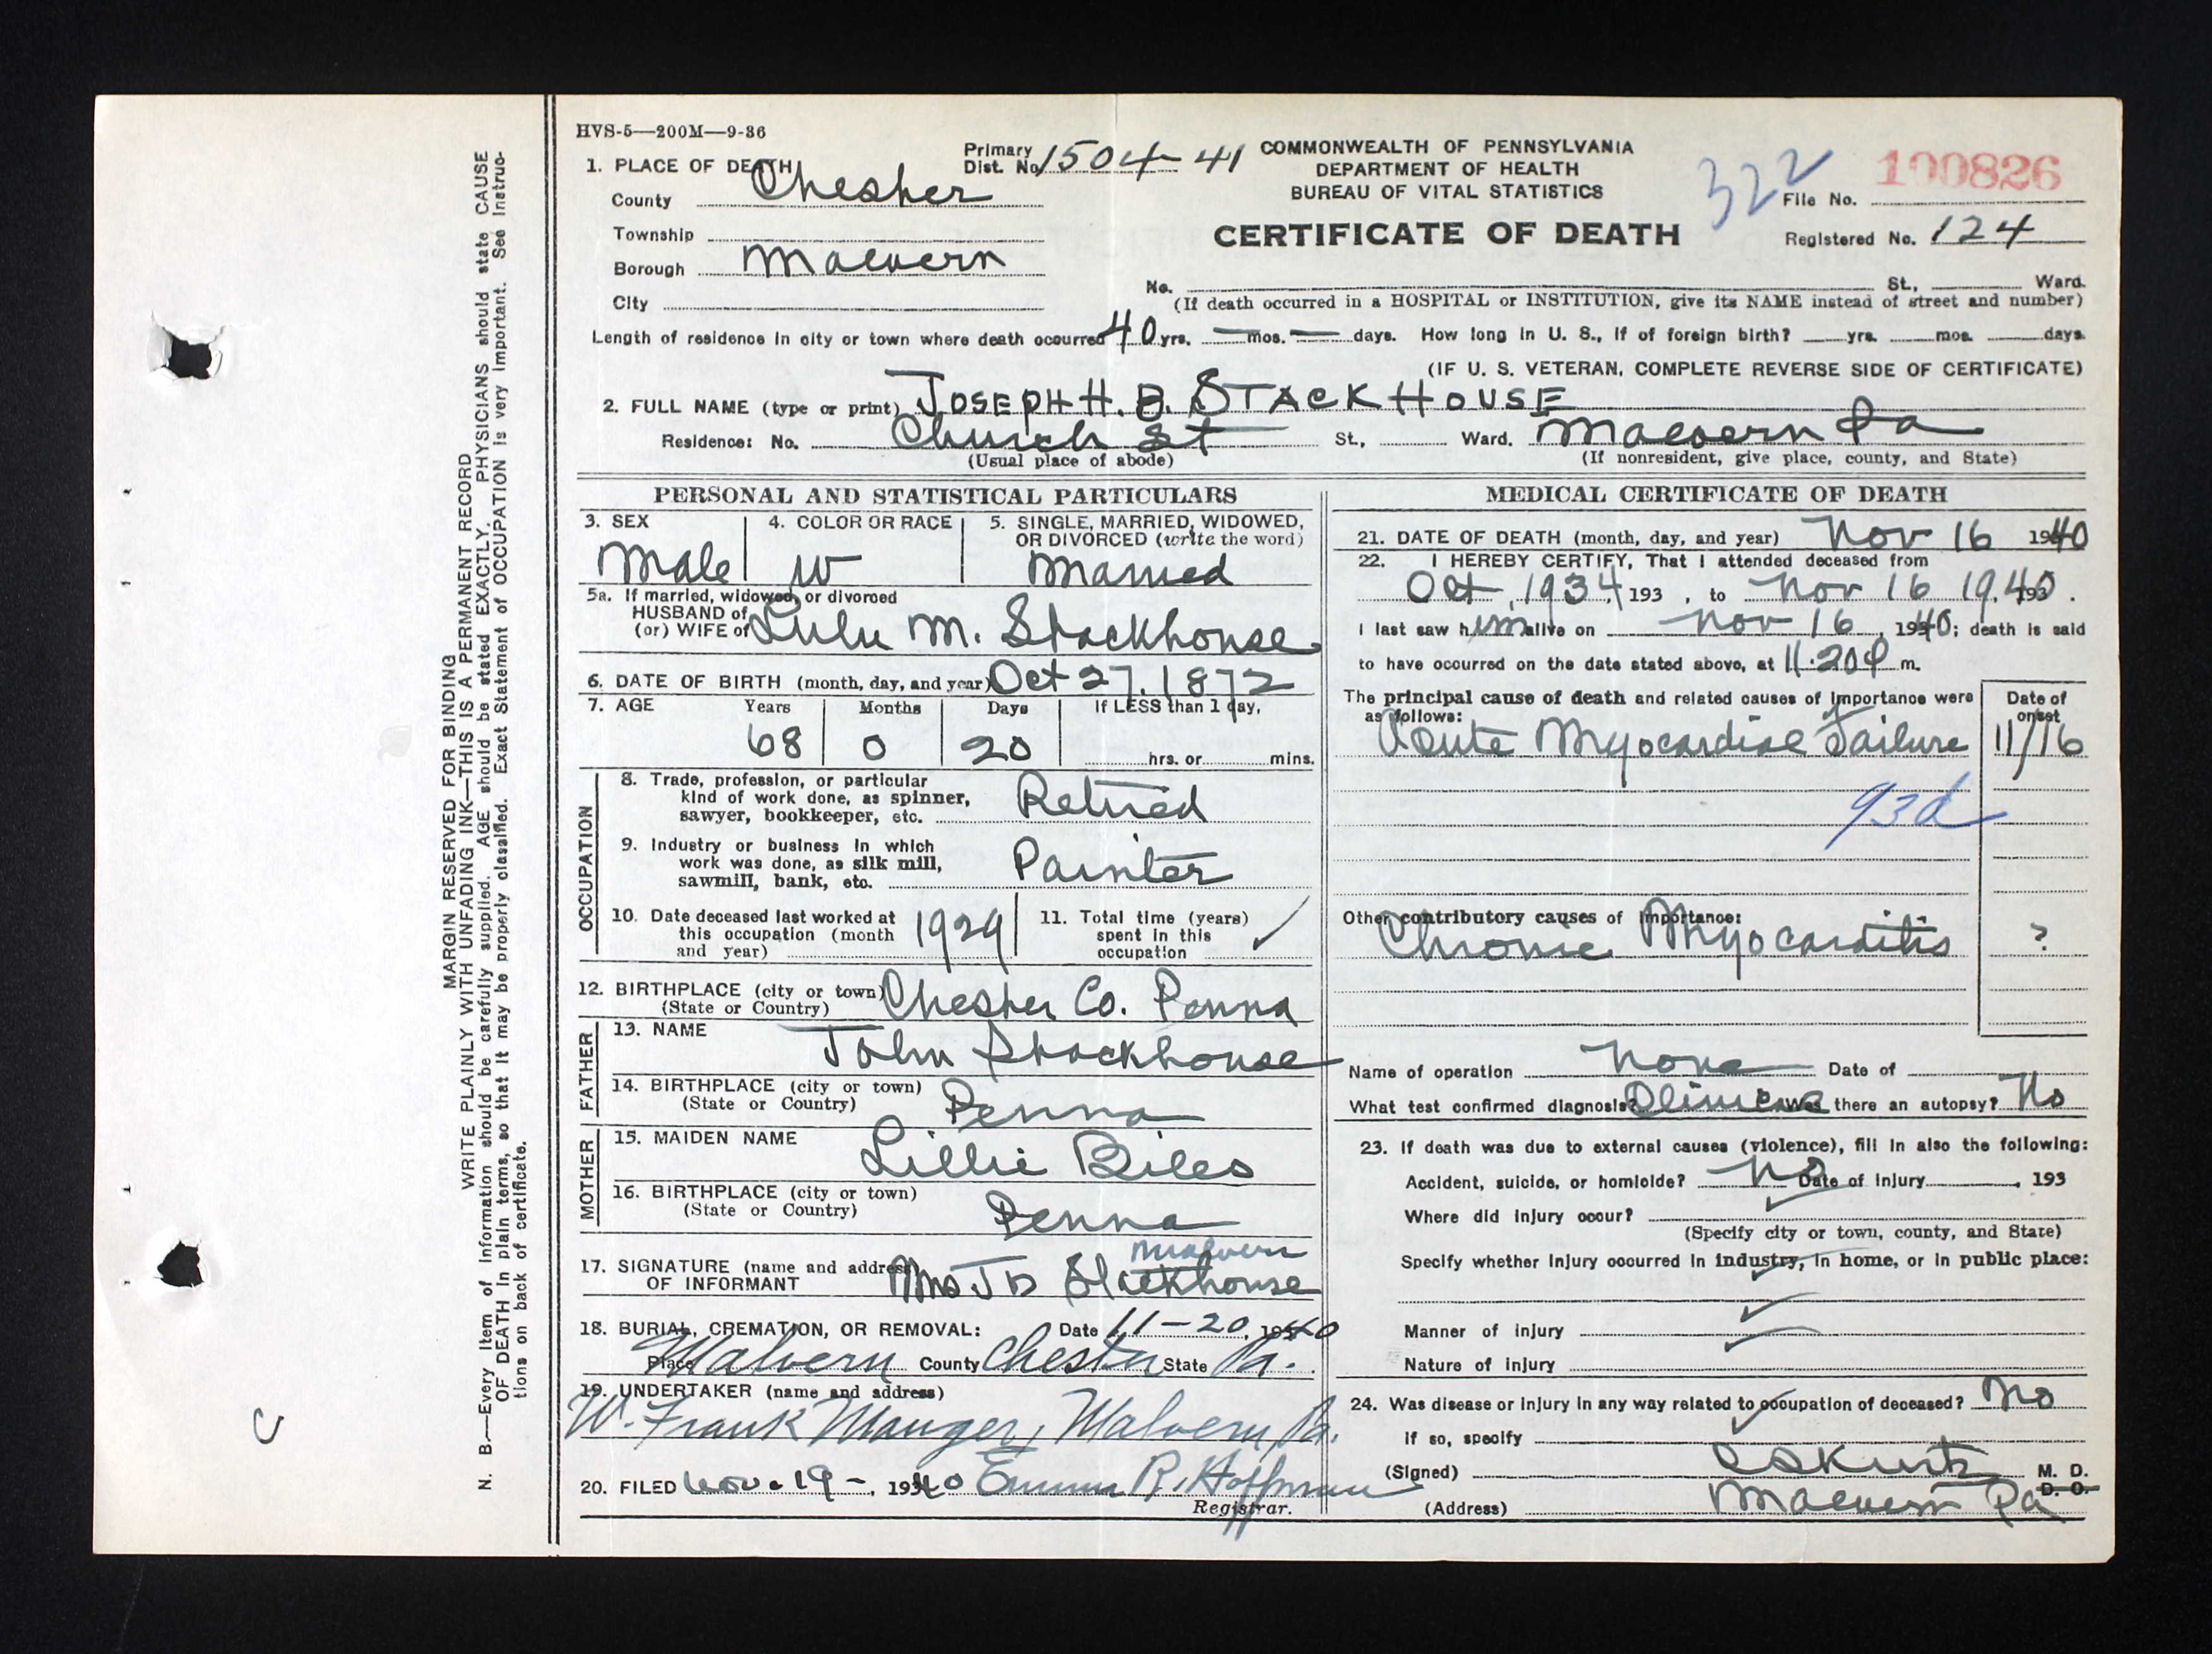 MARGIN RESERVED FOR BINDING
WRITE PLAINLY WITH UNFADING INK—THIS IS A PERMANENT RECORD
N. B.—Every item of information should be carefully supplied. AGE should be stated EXACTLY. PHYSICIANS should state CAUSE
OF DEATH in plain terms, so that it may be properly classified. Exact Statement of OCCUPATION is very important. See instruc-
tions on back of certificate.
C
HVS-5—200M—9-36
Primary Dist. No. 1504-41
COMMONWEALTH OF PENNSYLVANIA
DEPARTMENT OF HEALTH
BUREAU OF VITAL STATISTICS
CERTIFICATE OF DEATH
322
File No. 100826
Registered No. 124
1. PLACE OF DEATH
County Chester
Township
Borough Malvern
City
No. St., Ward.
(If death occurred in a HOSPITAL or INSTITUTION, give its NAME instead of street and number)
Length of residence in city or town where death occurred 40 yrs. — mos. — days. How long in U. S., if of foreign birth? yrs. mos. days.
(IF U. S. VETERAN, COMPLETE REVERSE SIDE OF CERTIFICATE)
2. FULL NAME (type or print) JOSEPH H. B. STACKHOUSE
Residence: No. Church St St., Ward. Malvern Pa
(Usual place of abode) (If nonresident, give place, county, and State)
PERSONAL AND STATISTICAL PARTICULARS
3. SEX Male
4. COLOR OR RACE W
5. SINGLE, MARRIED, WIDOWED, OR DIVORCED (write the word) Married
5a. If married, widowed, or divorced
HUSBAND of
(or) WIFE of Lulu M. Stackhouse
6. DATE OF BIRTH (month, day, and year) Oct 27. 1872
7. AGE Years Months Days If LESS than 1 day,
68 0 20 hrs. or mins.
OCCUPATION
8. Trade, profession, or particular
kind of work done, as spinner,
sawyer, bookkeeper, etc. Retired
9. Industry or business in which
work was done, as silk mill,
sawmill, bank, etc. Painter
10. Date deceased last worked at
this occupation (month
and year) 1929
11. Total time (years)
spent in this
occupation ✓
12. BIRTHPLACE (city or town) Chester Co. Penna
(State or Country)
FATHER
13. NAME John Stackhouse
14. BIRTHPLACE (city or town)
(State or Country) Penna
MOTHER
15. MAIDEN NAME Lillie Biles
16. BIRTHPLACE (city or town)
(State or Country) Penna
Malvern
17. SIGNATURE (name and address)
OF INFORMANT Mrs J B Stackhouse
18. BURIAL, CREMATION, OR REMOVAL: Date 11-20, 1940
Place Malvern County Chester State Pa.
19. UNDERTAKER (name and address)
W. Frank Mauger, Malvern, Pa.
20. FILED Nov. 19-, 1940 Emma R. Hoffman
Registrar.
MEDICAL CERTIFICATE OF DEATH
21. DATE OF DEATH (month, day, and year) Nov 16 1940
22. I HEREBY CERTIFY, That I attended deceased from
Oct, 1934, 193 , to Nov 16 1940, 193 .
I last saw him alive on Nov 16, 1940; death is said
to have occurred on the date stated above, at 11.20 P m.
The principal cause of death and related causes of importance were
as follows:
Date of onset
Acute Myocardial Failure 11/16
93d
Other contributory causes of importance:
Chronic Myocarditis ?
Name of operation None Date of
What test confirmed diagnosis? Clinical Was there an autopsy? No
23. If death was due to external causes (violence), fill in also the following:
Accident, suicide, or homicide? No Date of injury , 193
Where did injury occur?
(Specify city or town, county, and State)
Specify whether injury occurred in industry, in home, or in public place:
Manner of injury
Nature of injury
24. Was disease or injury in any way related to occupation of deceased? No
If so, specify
(Signed) M. D.
D. O.
(Address) Malvern Pa